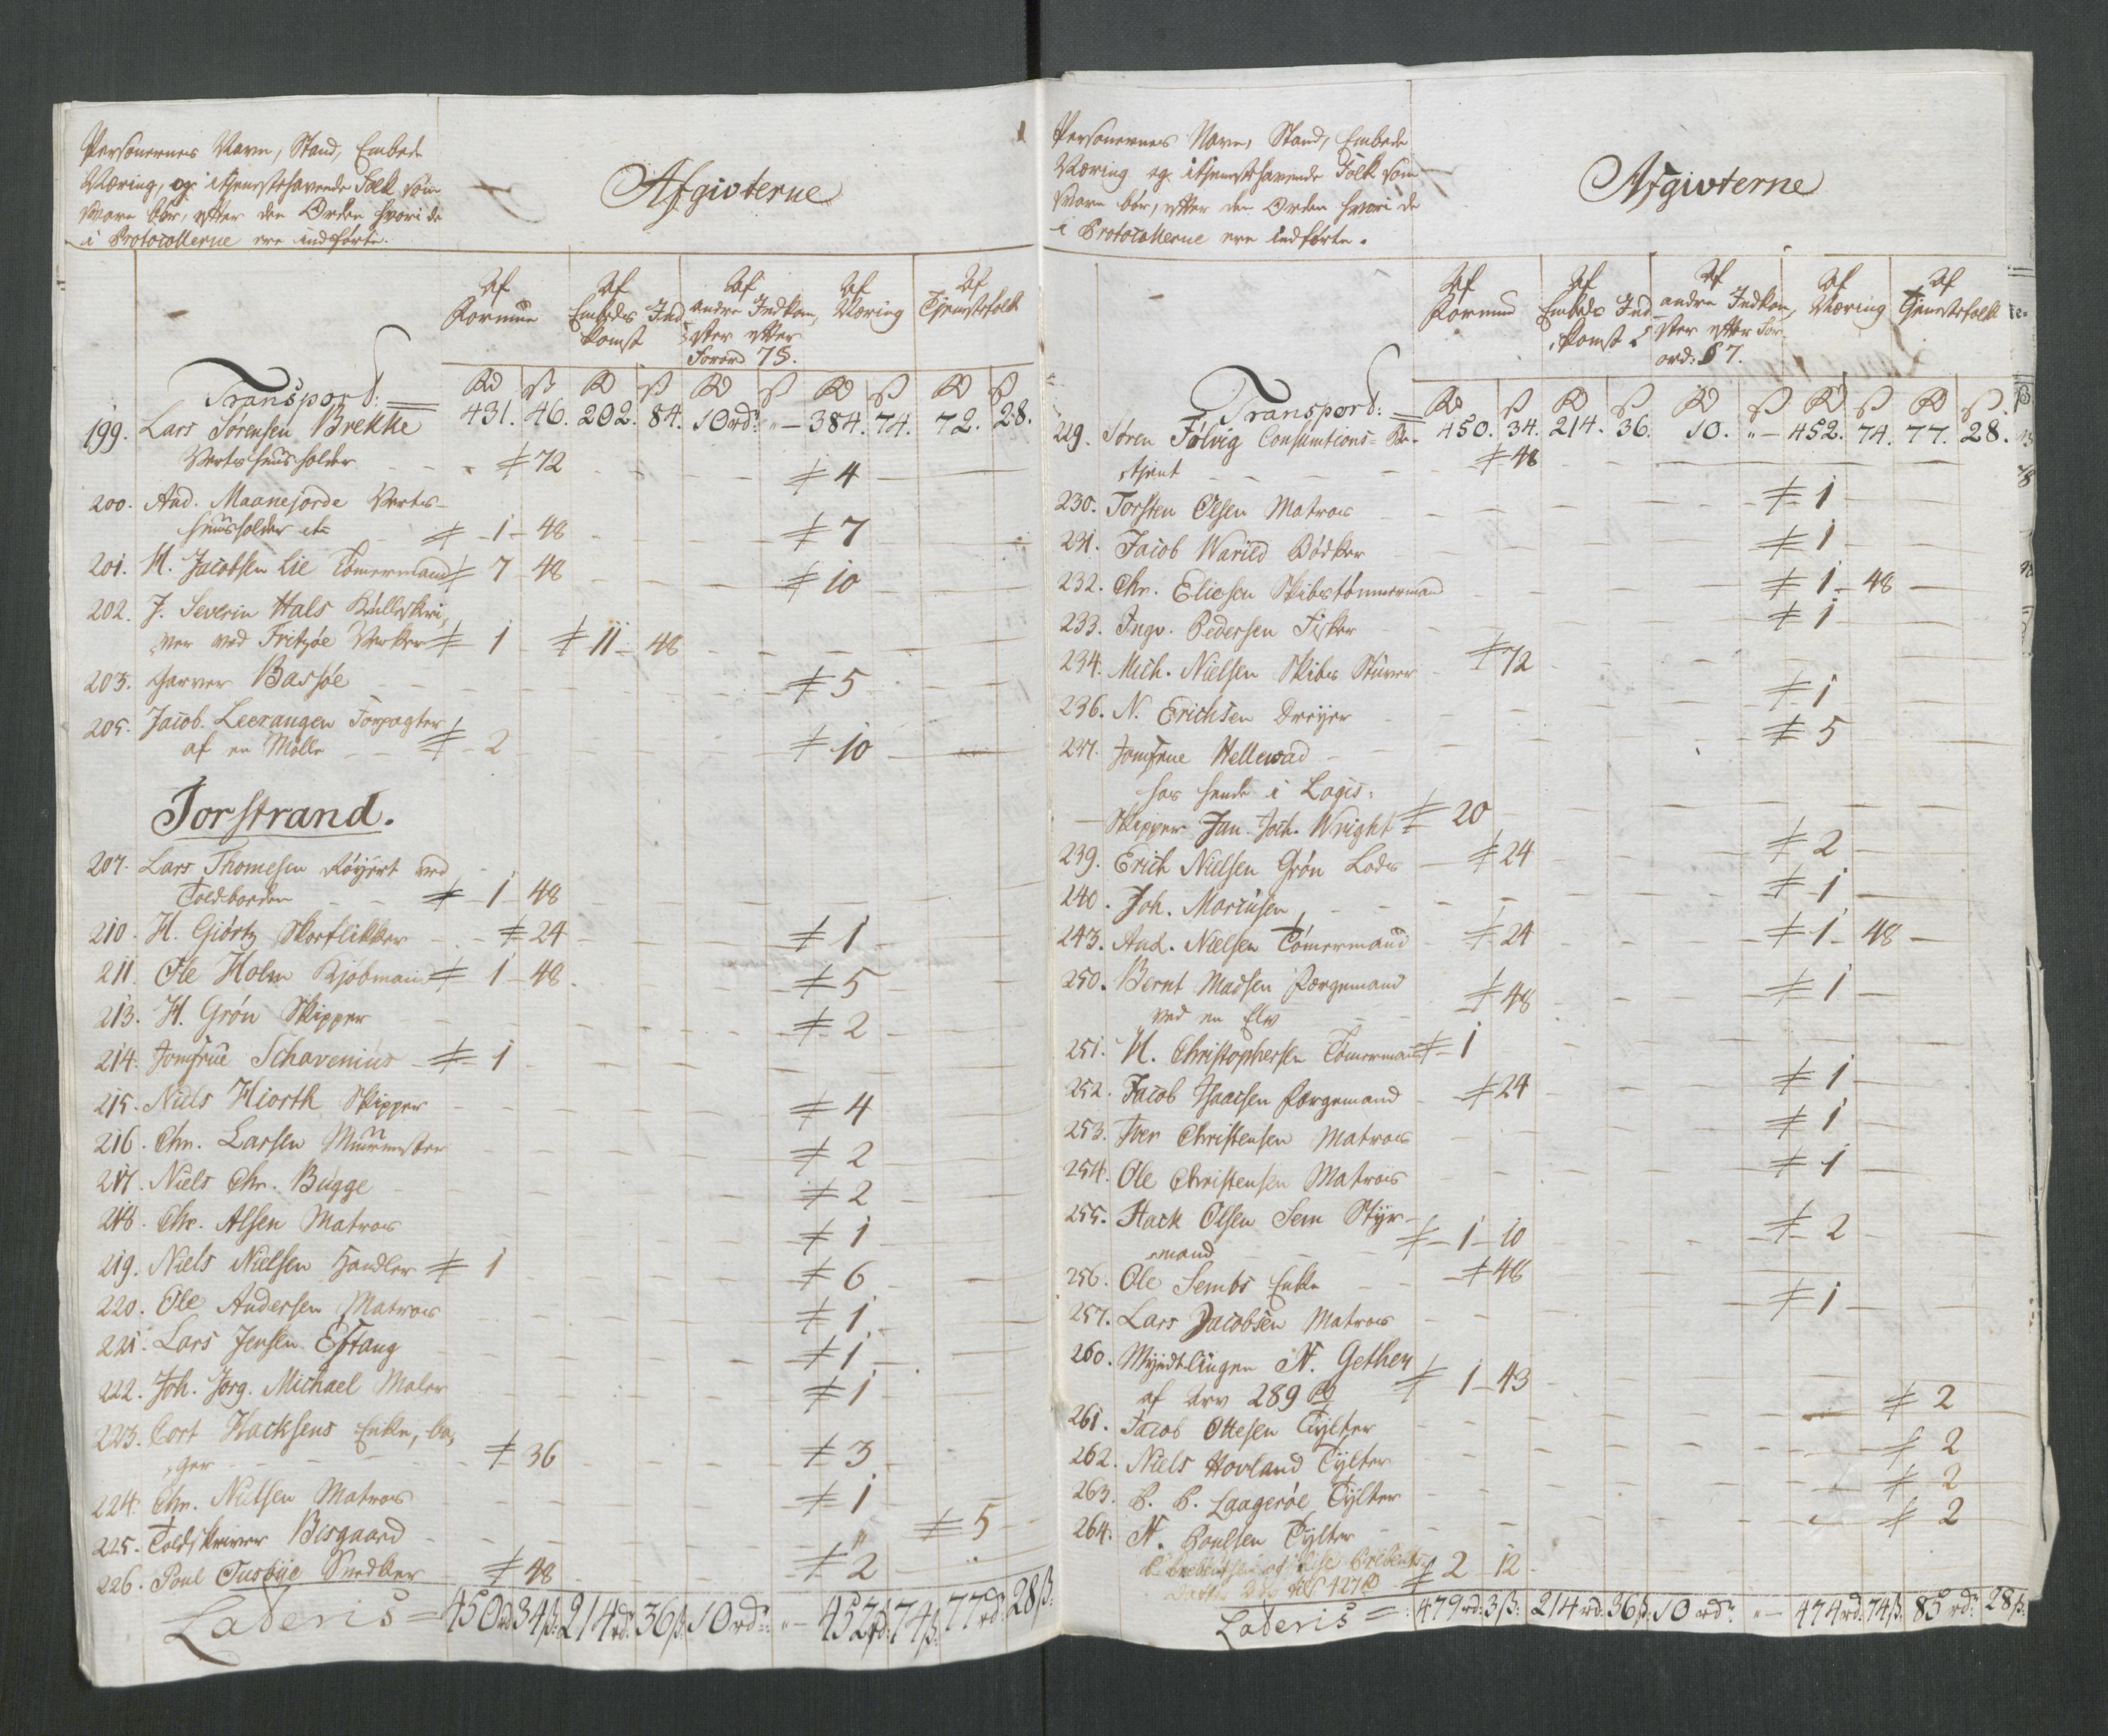 Personernes Navn, Stand, Embede
Næring, og itienestehavende Folk som
svare bör, efter den Orden hvori de
i Protocollerne ere indförte.
Afgivterne
Af Formue
Af Embeds Indkomst
Af andre Indkomster efter Forord 7 §.
Af Næring
Af Tjenestefolk
Rd ß Rd ß Rd ß Rd ß Rd ß
Transport: 431. 46. 202. 84. 10 rdr. „ — 384. 74. 72. 28.
199. Lars Sørensen Brekke
Vertshuusholder ≠ 72 ≠ 4
200. And. Maanejorde Verts-
huusholder etc ≠ 1 - 48 ≠ 7
201. H. Jacobsen Lie Tömermand ≠ 7 - 48 ≠ 10
202. J. Severin Hals Kulleskri-
ver ved Fritzøe Verker ≠ 1 ≠ 11 - 48
203. Garver Bassøe ≠ 5
205. Jacob Leerangen Forpagter
af en Mølle ≠ 2 ≠ 10
Torstrand.
207. Lars Thomesen Röyert ved
Toldboden ≠ 1 - 48
210. H. Giörtz Skoeflikker ≠ 24 ≠ 1
211. Ole Holm Kjöbmand ≠ 1 - 48 ≠ 5
213. H. Grön Skipper ≠ 2
214. Jomfrue Schavenius ≠ 1
215. Niels Hiorth Skipper ≠ 4
216. Chr. Larsen Muurmester ≠ 2
217. Niels Chr. Bugge ≠ 2
218. Chr. Alsen Matros ≠ 1
219. Niels Nielsen Handler ≠ 1 ≠ 6
220. Ole Andersen Matros ≠ 1
221. Lars Jensen Eftang ≠ 1
222. Joh. Jørg. Michael Maler ≠ 1
223. Cort Hacksens Enke, ba-
ger ≠ 36 ≠ 3
224. Chr. Nielsen Matros ≠ 1
225. Toldskriver Bisgaard „ ≠ 5
226. Poul Tusbye Snedker ≠ 48 ≠ 2
Lateris = 450 rd 34 ß: 214 rd. 36 ß: 10 rdr: „ — 452 rd. 74 ß. 77 rd. 28 ß:
Personernes Navn, Stand, Embede
Næring og itienestehavende Folk som
svare bör, efter den Orden hvori de
i Protocollerne ere indförte.
Afgivterne
Af Formue
Af Embeds Indkomst
Af andre Indkomster efter Forord: § 7.
Af Næring
Af Tjenestefolk
Rd ß Rd ß Rd ß Rd ß Rd ß
Transport: 450. 34. 214. 36. 10. „ — 452. 74. 77. 28.
229. Søren Fölvig Consumtions- Be-
tjent ≠ 48
230. Torsten Olsen Matros ≠ 1
231. Jacob Warild Bödker ≠ 1
232. Chr. Eliesen Skibstömmermand ≠ 1 - 48
233. Ingv. Pedersen Fisker ≠ 1
234. Mich. Nielsen Skibs Stuver ≠ 72
236. N. Erichsen Dreyer ≠ 1
237. Jomfrue Hellewad ≠ 5
hos hende i Logis:
Skipper Jan. Joch. Wright ≠ 20
239. Erich Nielsen Grön Lods ≠ 24 ≠ 2
240. Joh. Mariusen ≠ 1
243. And. Nielsen Tömermand ≠ 24 ≠ 1 - 48
250. Bernt Madsen Færgemand
ved en Elv ≠ 48 ≠ 1
251. H. Christophersen Tömermand ≠ 1
252. Jacob Isaacsen Færgemand ≠ 24 ≠ 1
253. Iver Christensen Matros ≠ 1
254. Ole Christensen Matros ≠ 1
255. Hack Olsen Sem Styr-
mand ≠ 1 - 10 ≠ 2
256. Ole Sembs Enke ≠ 48
257. Lars Jacobsen Matros ≠ 1
260. Myndtlingen N. Gether
af Arv 289 Rd ≠ 1 - 43
261. Jacob Ottesen Tylter ≠ 2
262. Niels Hovland Tylter ≠ 2
263. B. B. Laagerøe Tylter ≠ 2
264. N. Poulsen Tylter ≠ 2
427 Rd ≠ 2 - 12
Lateris =: 479 rd: 3 ß: 214 rd: 36 ß: 10 rdr. „ — 474 rd: 74 ß: 85 rdr. 28 ß: